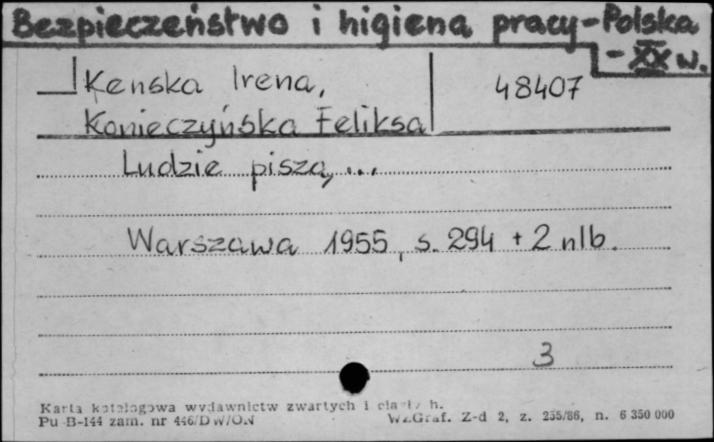 Bezpieczeństwo i higiena pracy - Polska
- XX w.
Kenska Irena,
48407
Konieczyńska Feliksa
Ludzie piszą, ...
Warszawa 1955, s. 294 + 2 nlb.
3
Karta katalogowa wydawnictw zwartych i h.
Pu-B-144 zam. nr 446/DW/ON
WZGraf. Z-d 2, z. 255/86, n. 6 350 000